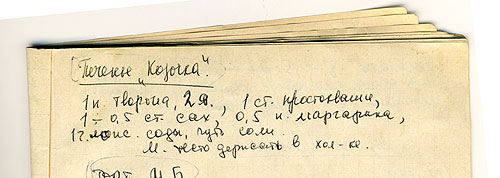 Печенье „Козочка".
1 п. творога, 2 я., 1 ст. простокваши,
1÷0,5 ст. сах, 0,5 п. маргарина,
1 г. ложс. соды, чуть соли.
М. тесто держать в хол-ке.
Торт М Б